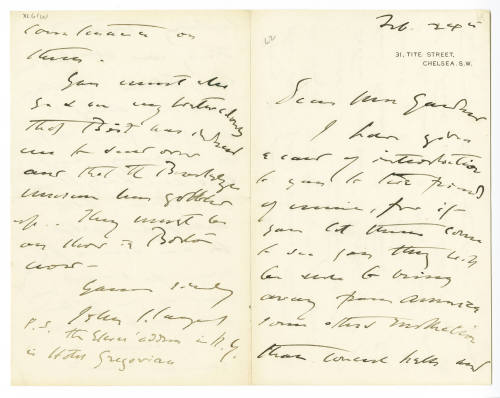 Feb. 24th
31, TITE STREET,
CHELSEA. S.W.
Dear Mrs Gardner
I have given
a card of introduction
to you to two friends
of mine, for if
you let them come
to see you they will
be sure to bring
away from America
some other
than concert halls and
on
them.
You must also
go &
that has
me to send over
and that the Brooklyn
museum has gobbled
up. They must be
on show in Boston
now –
Yours sincerely
John S. Sargent
P.S. The address in N.Y.
is Hotel Gregorian